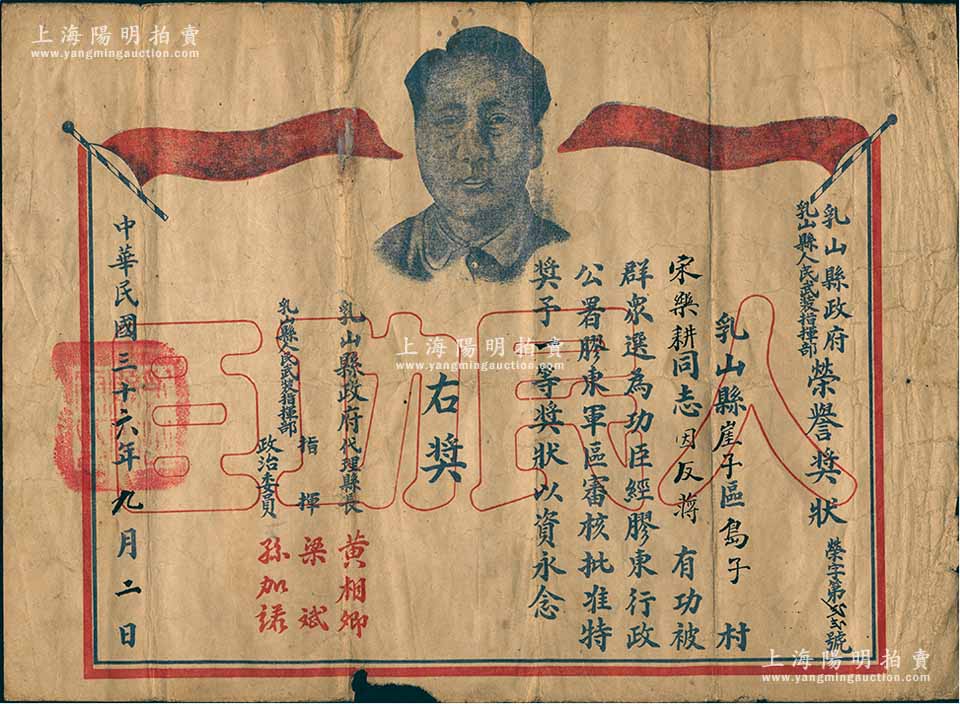 上海陽明拍賣
www.yangmingauction.com
乳山縣政府
乳山縣人民武裝指揮部
榮譽奬狀
榮字第 號
乳山縣崖子區島子村
宋樂耕同志因反蔣有功被
群衆選為功臣經膠東行政
公署膠東軍區審核批准特
奬予一等奬狀以資永念
右奬
乳山縣政府代理縣長 黄相卿
乳山縣人民武裝指揮部
指揮 梁斌
政治委員 孫加諾
中華民國三十六年九月二日
人民功臣
上海陽明拍賣
www.yangmingauction.com
上海陽明拍賣
www.yangmingauction.com